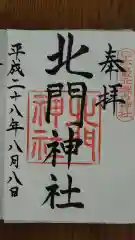 奉拝
北門神社
平成二十八年八月八日
北門神社